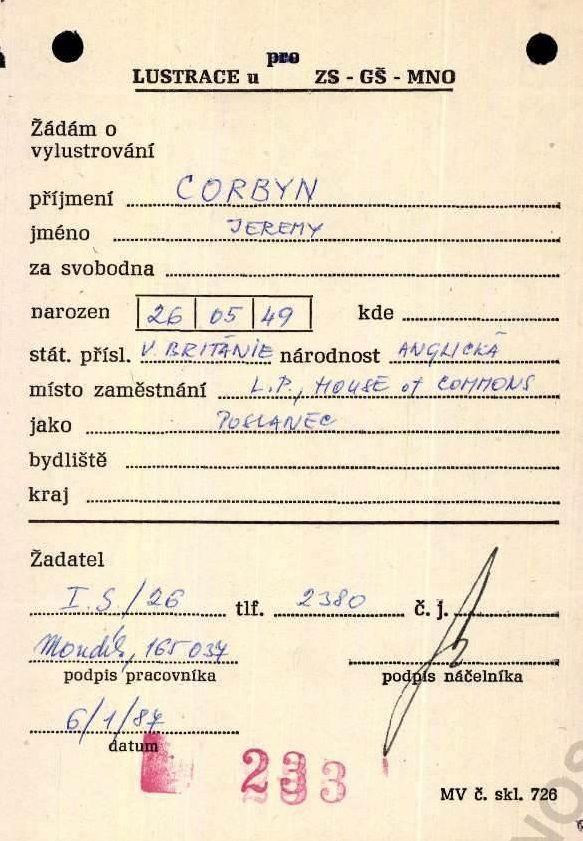 pro
LUSTRACE u ZS - GŠ - MNO
Žádám o
vylustrování
příjmení CORBYN
jméno JEREMY
za svobodna
narozen 26 05 49 kde
stát. přísl. V. BRITÁNIE národnost ANGLICKÁ
místo zaměstnání L.P., HOUSE of COMMONS
jako POSLANEC
bydliště
kraj
Žadatel
I. S/26 tlf. 2380 č. j.
165 037
podpis pracovníka podpis náčelníka
6/1/87
datum
233
MV č. skl. 726